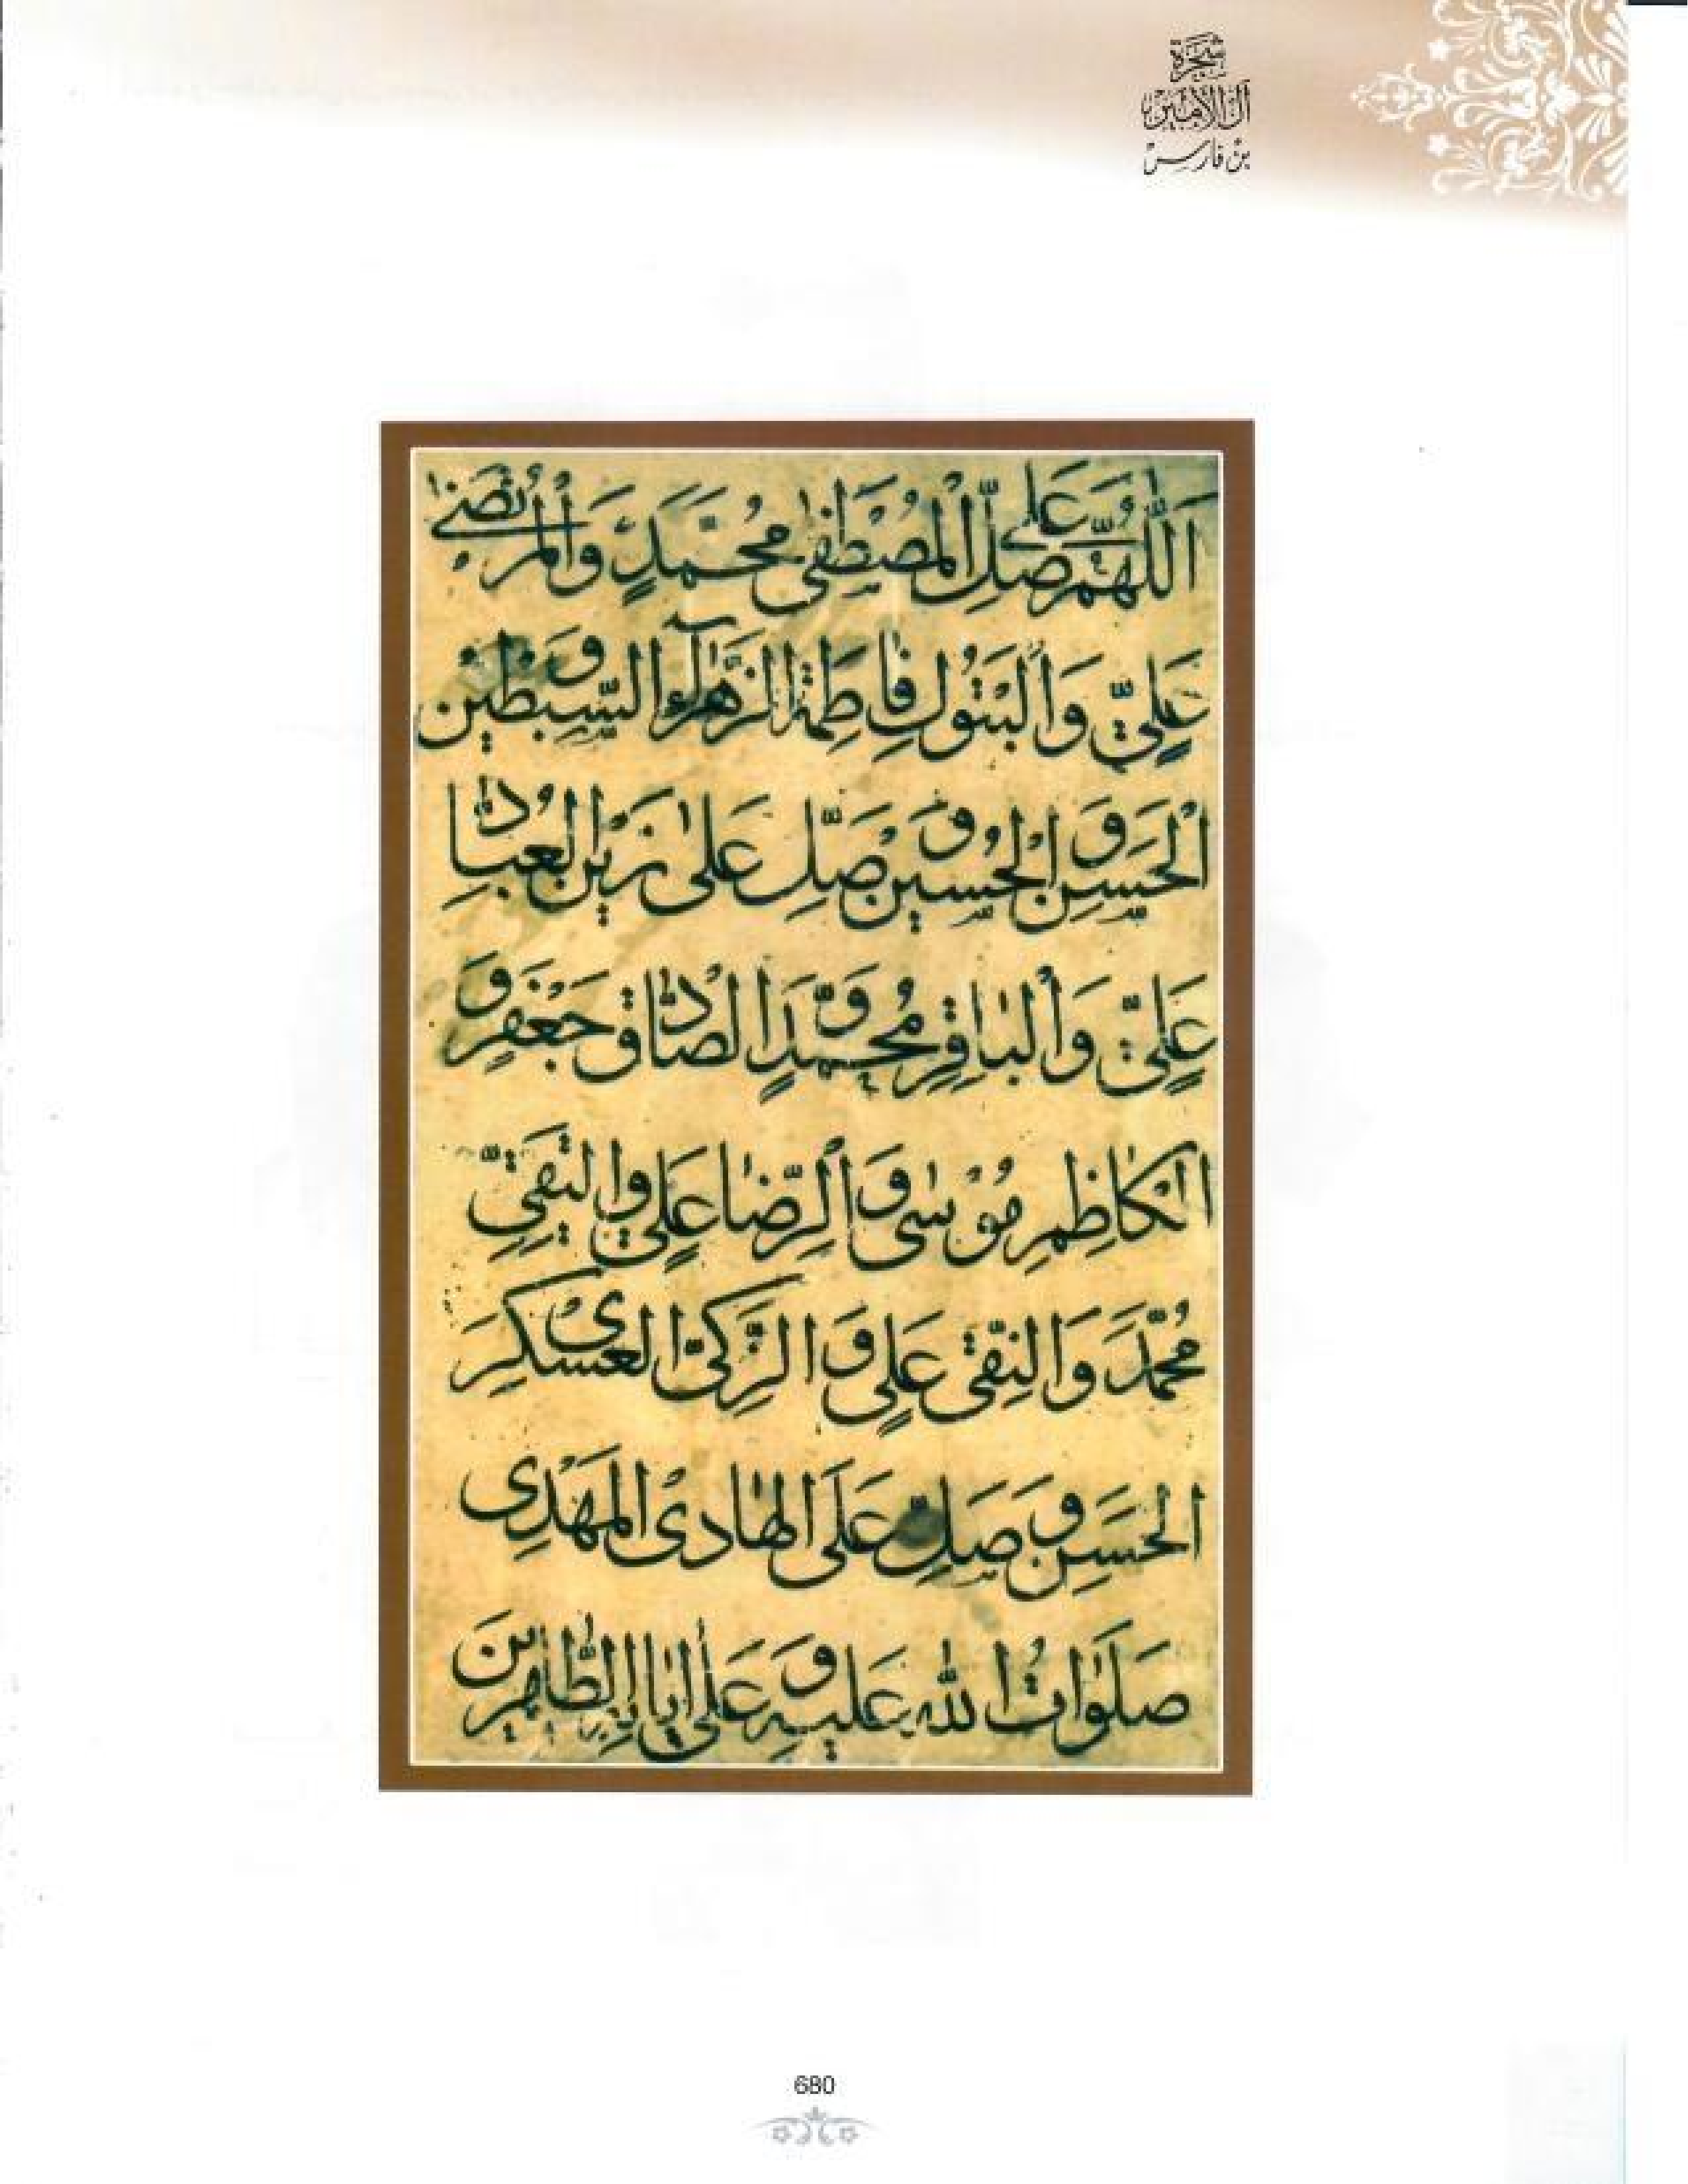 شجرة
آل الأمين
بن فارس
اَللّٰهُمَّ صَلِّ عَلَى الْمُصْطَفٰى مُحَمَّدٍ وَالْمُرْتَضٰى
عَلِيٍّ وَالْبَتُولِ فَاطِمَةَ الزَّهْرَآءِ وَ السِّبْطَيْنِ
اَلْحَسَنِ وَ الْحُسَيْنِ وَ صَلِّ عَلٰى زَيْنِ الْعُبَّادِ
عَلِيٍّ وَالْبَاقِرِ مُحَمَّدٍ وَ الصَّادِقِ جَعْفَرٍ وَ
الْكَاظِمِ مُوْسٰى وَ الرِّضَا عَلِيٍّ وَالتَّقِيِّ
مُحَمَّدٍ وَالنَّقِيِّ عَلِيٍّ وَ الزَّكِيِّ الْعَسْكَرِيِّ
الْحَسَنِ وَ صَلِّ عَلَى الْهَادِي الْمَهْدِي
صَلَوَاتُ اللّٰهِ عَلَيْهِ وَ عَلٰى اٰبَائِهِ الطَّاهِرِيْنَ
680